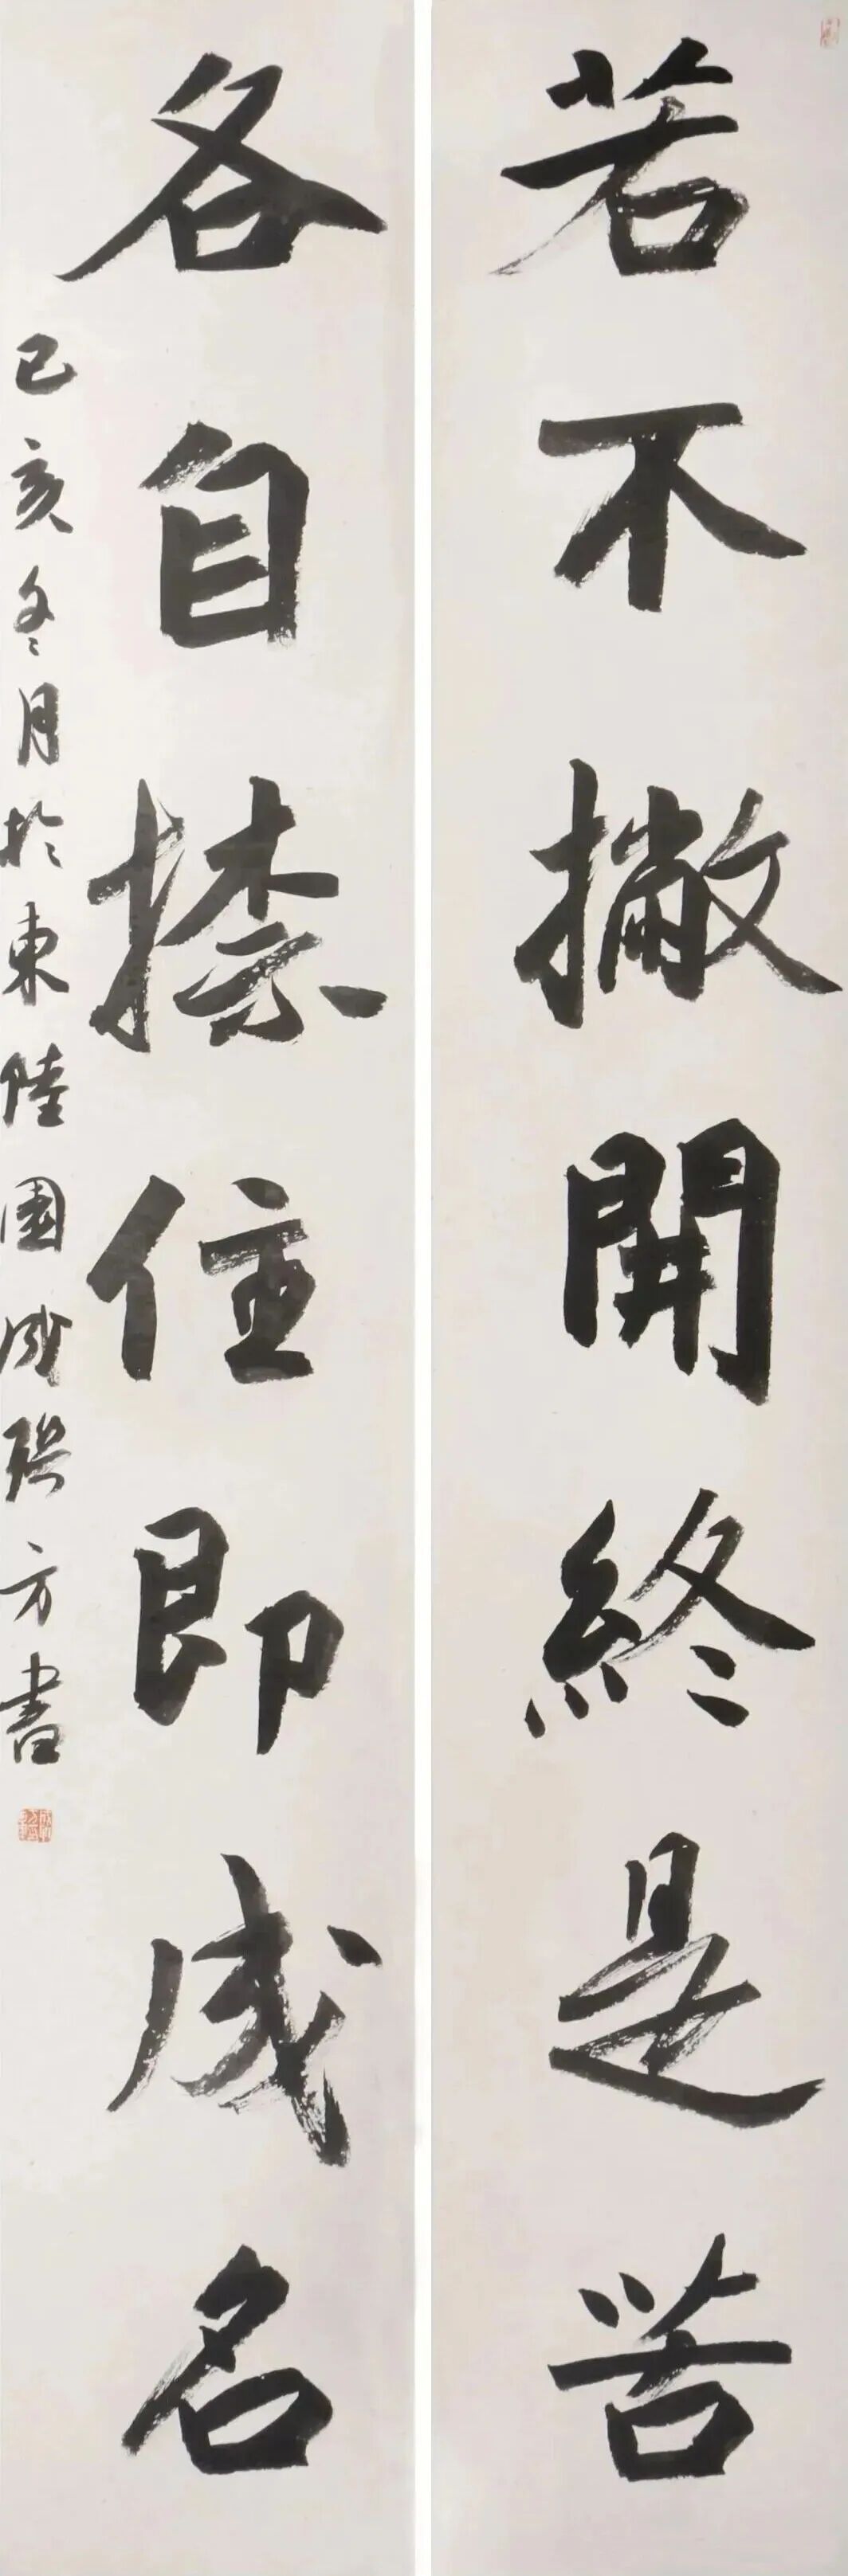 若不撇開終是苦
各自捺住即成名
己亥冬月於東陸園成聯方書